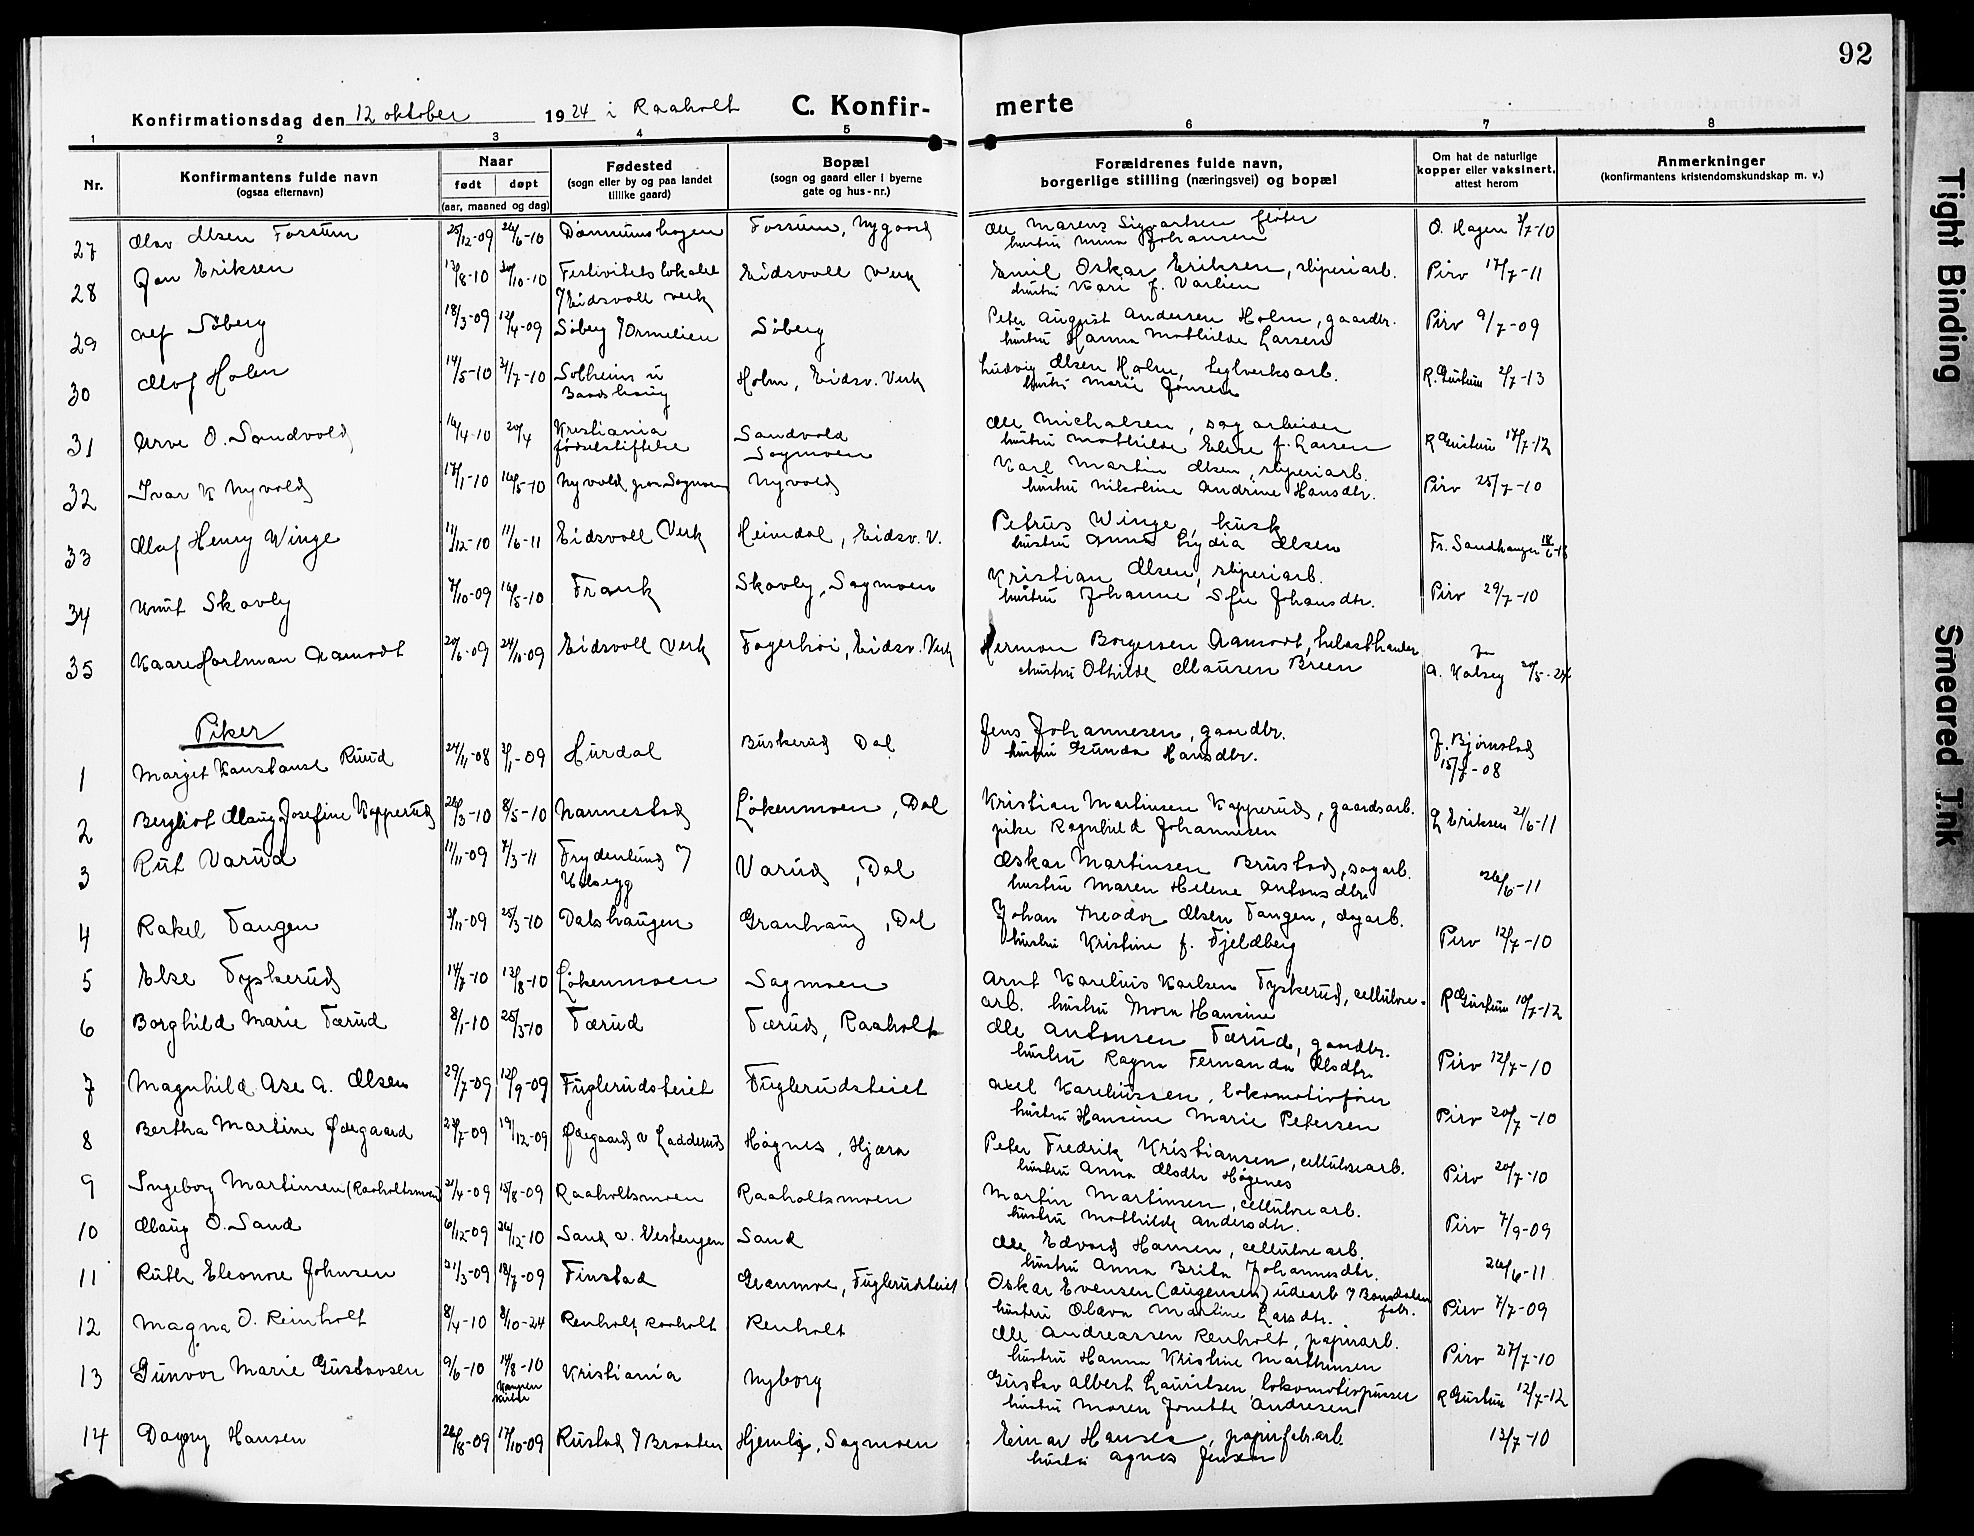 92
Konfirmationsdag den 12 oktober 1924 i Raaholt C. Konfir- merte
1 2 3 4 5 6 7 8
Nr.
Konfirmantens fulde navn
(ogsaa efternavn)
Naar
født døpt
(aar, maaned og dag)
Fødested
(sogn eller by og paa landet
tillike gaard)
Bopæl
(sogn og gaard eller i byerne
gate og hus-nr.)
Forældrenes fulde navn,
borgerlige stilling (næringsvei) og bopæl
Om hat de naturlige
kopper eller vaksinert,
attest herom
Anmerkninger
(konfirmantens kristendomskundskap m. v.)
27 Olav Olsen Fossum 25/12-09 26/6-10 Dønnumshagen Fossum, Nygaard Ole Marens Sigvartsen fløter O. Hagen 3/7-10
hustru Mina Johansen
28 Jan Eriksen 13/8-10 30/10-10 Festivitetslokalet Eidsvoll Verk Emil Oskar Eriksen, sliperiarb. Pirv 17/7-11
7 Eidsvoll verk hustru Kari f. Varlien
29 Alf Søberg 18/3-09 12/4-09 Søberg 7 Ormelien Søberg Peter August Andersen Holm, gaardbr. Pirv 9/7-09
hustru Hanna Mathilde Larsen
30 Olaf Holm 14/5-10 31/7-10 Solheim u Holm, Eidsv. Verk Ludvig Olsen Holm, teglverksarb. R. Gustum 2/7-13
Baadshaug hustru Marie Jonsen
31 Arve O. Sandvold 16/4-10 20/4 Kristiania Sandvold Ole Michalsen, sagarbeider R Gustum 17/7-12
fødselsstiftelse Sagmoen hustru Mathilde Elise f. Larsen
32 Ivar K Nyvold 17/1-10 16/5-10 Nyvold Sagmoen Nyvold Karl Martin Olsen, sliperiarb. Pirv 25/7-10
hustru Nikoline Andrine Hansdtr.
33 Olaf Henry Winge 11/12-10 11/6-11 Eidsvoll Verk Heimdal, Eidsv. V. Petrus Winge, kusk Fr. Sandhangen
hustru Anna Lydia Olsen
34 Knut Skovly 7/10-09 16/5-10 Frank Skovly, Sagmoen Kristian Olsen, sliperiarb. Pirv 29/7-10
hustru Johanne Sofie Johansdtr.
35 Kaare Hartman Aamodt 20/6-09 24/10-09 Eidsvoll Verk Fagerhøi, Eidsv. Verk Herman Borgersen Aamodt,
hustru Othilde Mausen Breen A. Kalsey 20/5-24
Piker
1 Margit Konstanse Ruud 24/11-08 3/1-09 Hurdal Buskerud Dal Jens Johannesen, gaardbr. J. Bjørnstad
hustru Gunda Hansdtr. 15/7-08
2 Bergliot Olaug Josefine Kopperud 26/3-10 8/5-10 Nannestad Løkenmoen, Dal Kristian Martinsen Kopperud, gaardsarb. L Eriksen 21/6-11
pike Ragnhild Johannesen
3 Rut Varud 11/11-09 7/3-11 Frydenlund 7 Varud, Dal Oskar Martinsen Brustad, sagarb. 26/6-11
Habsegg hustru Maren Helene Antonsdtr.
4 Rakel Tangen 3/11-09 25/3-10 Dalshaugen Granhaug, Dal Johan Theodor Olsen Tangen, dagarb. Pirv 12/7-10
hustru Kristine f. Fjeldberg
5 Else Tyskerud 14/7-10 13/8-10 Løkenmoen Sagmoen Arnt Karelius Karlsen Tyskerud, cellulose- R Gustum 10/7-12
arb. hustru Mora Hansine
6 Borghild Marie Tærud 8/1-10 25/3-10 Tærud Tærud, Raaholt Ole Antonsen Tærud, gaardbr. Pirv 12/7-10
hustru Ragna Fernanda Olsdtr.
7 Magnhild Ase A. Olsen 29/7-09 12/9-09 Fuglerudsteiet Fuglerudsteiet Axel Kareliussen, lokomotivfører Pirv 20/7-10
hustru Hansine Marie Petersen
8 Bertha Martine Ødegaard 23/7-09 19/12-09 Ødegaard v Ladderud Høgnes, Hjæra Peter Fredrik Kristiansen, cellulosearb. Pirv 20/7-10
hustru Anna Olsdtr Høgenes
9 Ingeborg Martinsen (Raaholtsmoen) 21/4-09 15/8-09 Raaholtsmoen Raaholtsmoen Martin Martinsen, cellulosearb. Pirv 7/9-09
hustru Mathilde Andersdtr.
10 Olaug O. Sand 6/12-09 26/12-10 Sand v. Vestengen Sand Ole Edvard Hansen, cellulosearb. 26/6-11
hustru Anna Brita Johannesdtr.
11 Ruth Eleonore Johnsen 21/3-09 18/7-09 Finstad Granmoe, Fuglerudsteiet Oskar Evensen (Augensen) Pirv 7/7-09
hustru Olava Martine Larsdtr.
12 Magna O. Reinholt 8/4-10 8/10-24 Renholt, Raaholt Renholt Ole Andreassen Renholt, papirarb. Pirv 27/7-10
hustru Hanna Kristine Marthinsen
13 Gunvor Marie Gustavsen 9/6-10 14/8-10 Kristiania Nyborg Gustav Albert Lauritsen, lokomotivpusser R Gustum 12/7-12
hustru Maren Jonette Andresen
14 Dagny Hansen 26/8-09 17/10-09 Rustad 7 Braaten Hjemlig, Sagmoen Einar Hansen, papirfab.arb. 13/7-10
hustru Agnes Jensen
Tight Binding
Smeared Ink